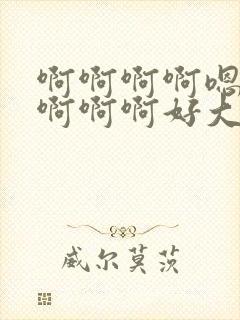 啊啊啊啊嗯
啊啊啊好大
威尔莫茨